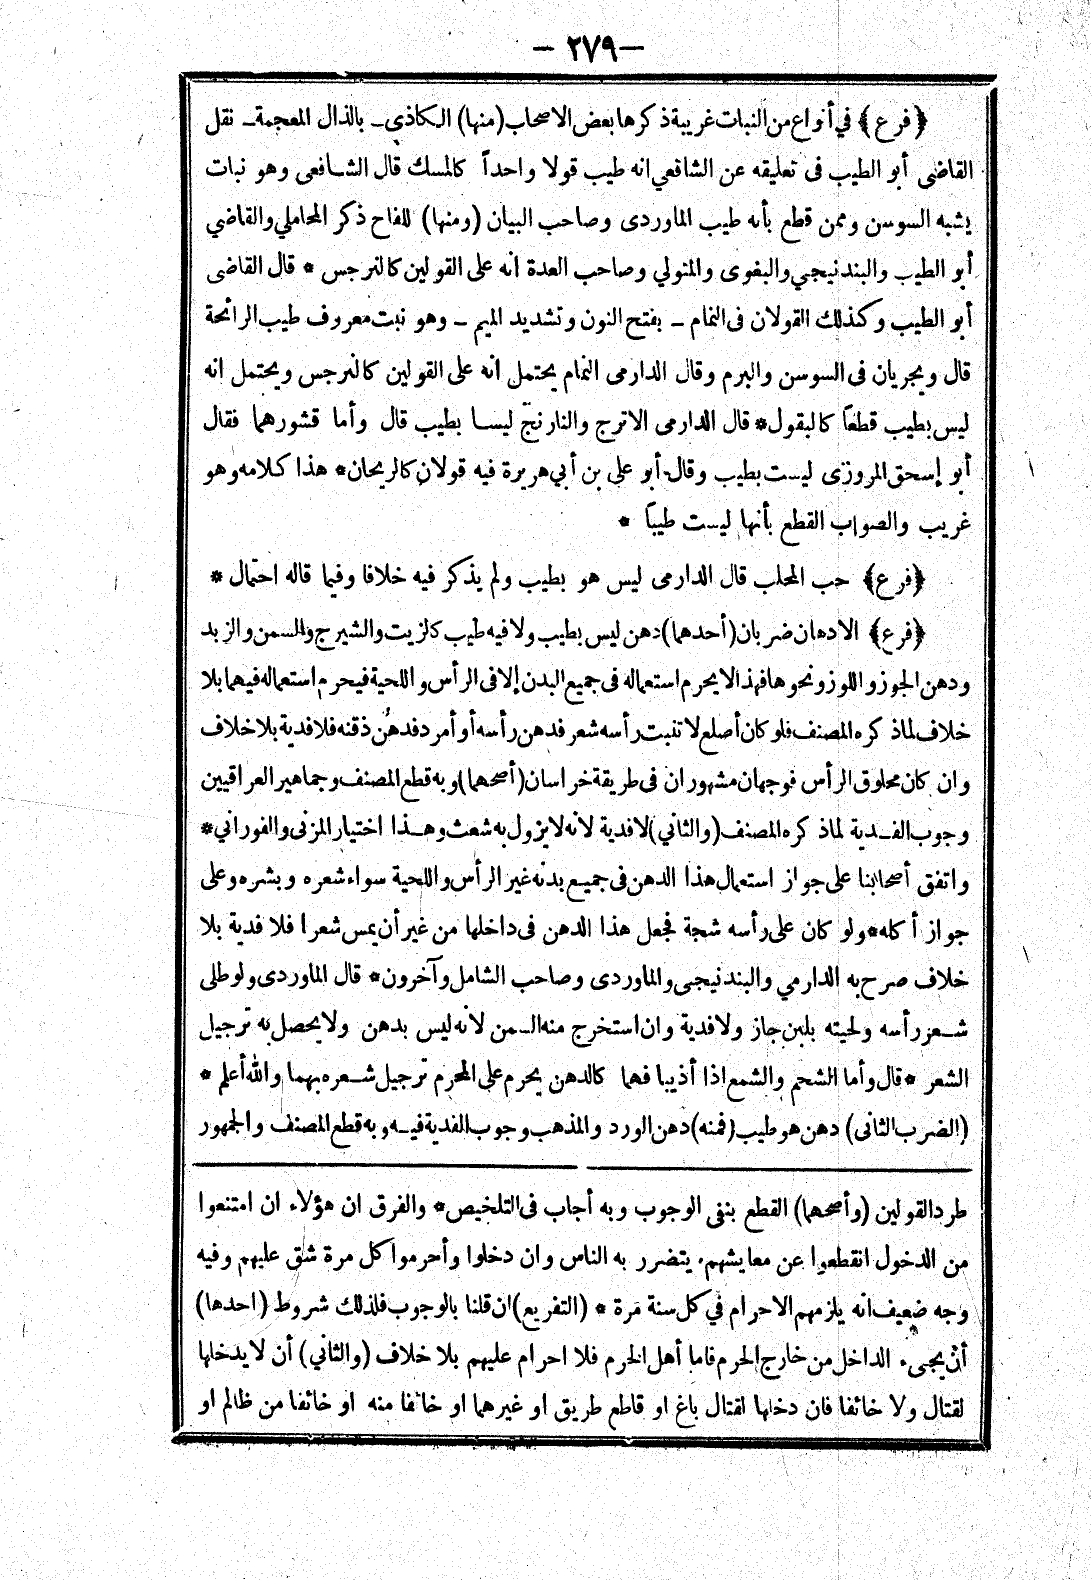 — ٢٧٩ —
﴿ فرع ﴾ في أنواع من النبات غريبة ذكرها بعض الاصحاب (منها) الكاذي ــ بالذال المعجمة ــ نقل
القاضى أبو الطيب فى تعليقه عن الشافعي انه طيب قولا واحداً كالمسك قال الشافعى وهو نبات
يشبه السوسن وممن قطع بأنه طيب الماوردى وصاحب البيان (ومنها) للفاح ذكر المحاملي والقاضي
أبو الطيب والبندنيجي والبغوى والمتولي وصاحب العدة انه على القولين كالنرجس * قال القاضى
أبو الطيب وكذلك القولان فى النمام ــ بفتح النون وتشديد الميم ــ وهو نبت معروف طيب الرائحة
قال ويجريان فى السوسن والبرم وقال الدارمى النمام يحتمل انه على القولين كالنرجس ويحتمل انه
ليس بطيب قطعاً كالبقول * قال الدارمى الاترج والنارنج ليسا بطيب قال وأما قشورهما فقال
أبو إسحق المروزى ليست بطيب وقال أبو على بن أبي هريرة فيه قولان كالريحان * هذا كلامه وهو
غريب والصواب القطع بأنها ليست طيباً *
﴿فرع﴾ حب المحلب قال الدارمى ليس هو بطيب ولم يذكر فيه خلافا وفيما قاله احتمال *
﴿فرع﴾ الادهان ضربان (أحدهما) دهن ليس بطيب ولا فيه طيب كالزيت والشيرج والسمن والزبد
ودهن الجوز واللوز ونحوها فهذا لا يحرم استعماله فى جميع البدن إلا فى الرأس واللحية فيحرم استعماله فيهما بلا
خلاف لماذكره المصنف فلو كان أصلع لا تنبت رأسه شعر فدهن رأسه أو أمرد فدهن ذقنه فلا فدية بلا خلاف
وان كان محلوق الرأس فوجهان مشهوران فى طريقة خراسان (أصحهما) وبه قطع المصنف وجماهير العراقيين
وجوب الفدية لماذكره المصنف (والثاني) لا فدية لانه لا يزول به شعث وهذا اختيار المزنى والفوراني *
واتفق أصحابنا على جواز استعمال هذا الدهن فى جميع بدنه غير الرأس واللحية سواء شعره وبشره وعلى
جواز أكله * ولو كان على رأسه شجة فجعل هذا الدهن فى داخلها من غير أن يمس شعرا فلا فدية بلا
خلاف صرح به الدارمي والبندنيجى والماوردى وصاحب الشامل وآخرون * قال الماوردى ولو طلى
شعر رأسه ولحيته بلبن جاز ولا فدية وان استخرج منه السمن لانه ليس بدهن ولا يحصل به ترجيل
الشعر * قال وأما الشحم والشمع اذا أذيبا فهما كالدهن يحرم على المحرم ترجيل شعره بهما والله أعلم *
(الضرب الثانى) دهن هو طيب (فمنه) دهن الورد والمذهب وجوب الفدية فيه وبه قطع المصنف والجمهور
طرد القولين (وأصحهما) القطع بنفى الوجوب وبه أجاب فى التلخيص * والفرق ان هؤلاء ان امتنعوا
من الدخول انقطعوا عن معايشهم. يتضرر به الناس وان دخلوا وأحرموا كل مرة شق عليهم وفيه
وجه ضعيف انه يلزمهم الاحرام في كل سنة مرة * (التفريع) ان قلنا بالوجوب فلذلك شروط (احدها)
أن يجىء الداخل من خارج الحرم فاما أهل الحرم فلا احرام عليهم بلا خلاف (والثاني) أن لا يدخلها
لقتال ولا خائفا فان دخلها لقتال باغ او قاطع طريق او غيرهما او خائفا منه او خائفا من ظالم او